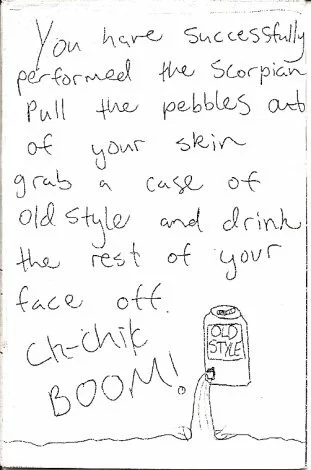 You have successfully
performed the Scorpian
Pull the pebbles out
of your skin
grab a case of
old style and drink
the rest of your
face off.
Ch-chik
BOOM!
OLD
STYLE